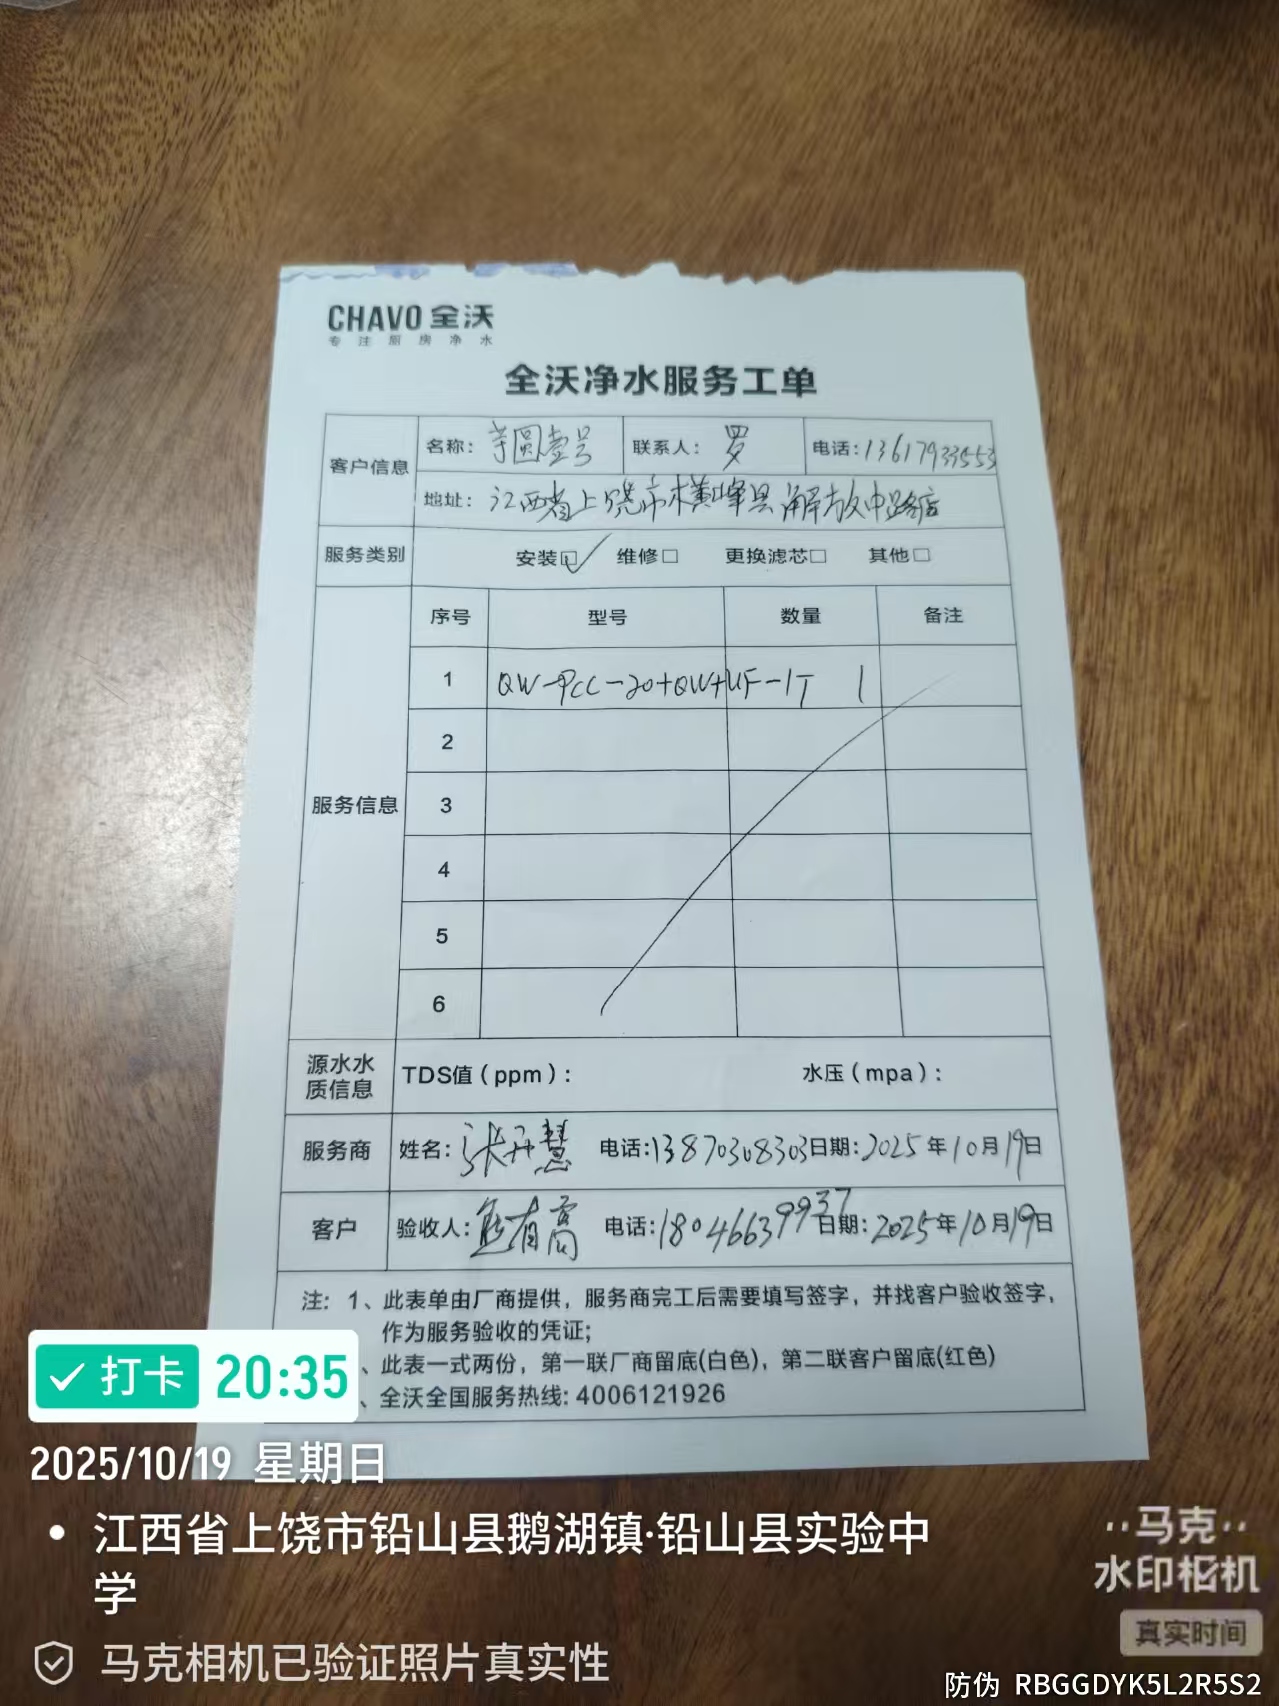 CHAVO 全沃
专注厨房净水
全沃净水服务工单
客户信息 名称: 芋圆壹号 联系人: 罗 电话: 13617933553
地址: 江西省上饶市横峰县解放中路店
服务类别 安装☑ 维修□ 更换滤芯□ 其他□
服务信息 序号 型号 数量 备注
1 QW-PCC-20+QW+UF-1T 1
2
3
4
5
6
源水水质信息 TDS值(ppm): 水压(mpa):
服务商 姓名: 张开慧 电话:13870308303 日期: 2025年10月19日
客户 验收人: 电话: 18046639937 日期: 2025年10月19日
注: 1、此表单由厂商提供，服务商完工后需要填写签字，并找客户验收签字，
作为服务验收的凭证;
、此表一式两份，第一联厂商留底(白色)，第二联客户留底(红色)
、全沃全国服务热线: 4006121926
打卡 20:35
2025/10/19 星期日
江西省上饶市铅山县鹅湖镇·铅山县实验中
学
马克相机已验证照片真实性
马克
水印相机
真实时间
防伪 RBGGDYK5L2R5S2